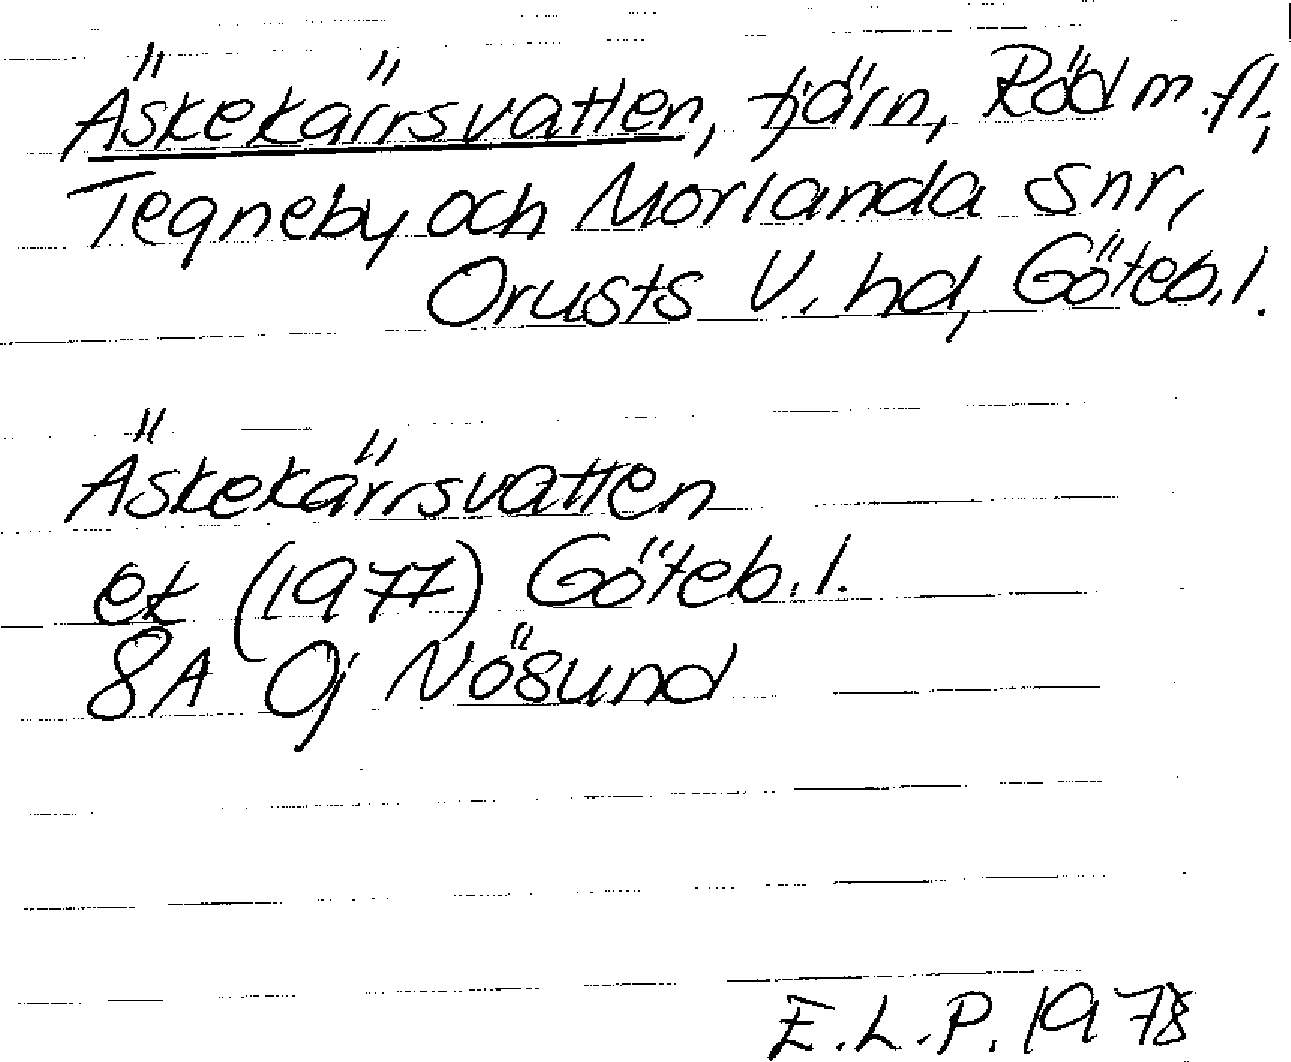 Äskekärrsvatten, tjärn, Röd m.fl.,
Tegneby och Morlanda snr,
Orusts V. hd, Göteb.l.
Äskekärrsvatten
ek (1977) Göteb.l.
8A 0j Nösund
E.L.P. 1978